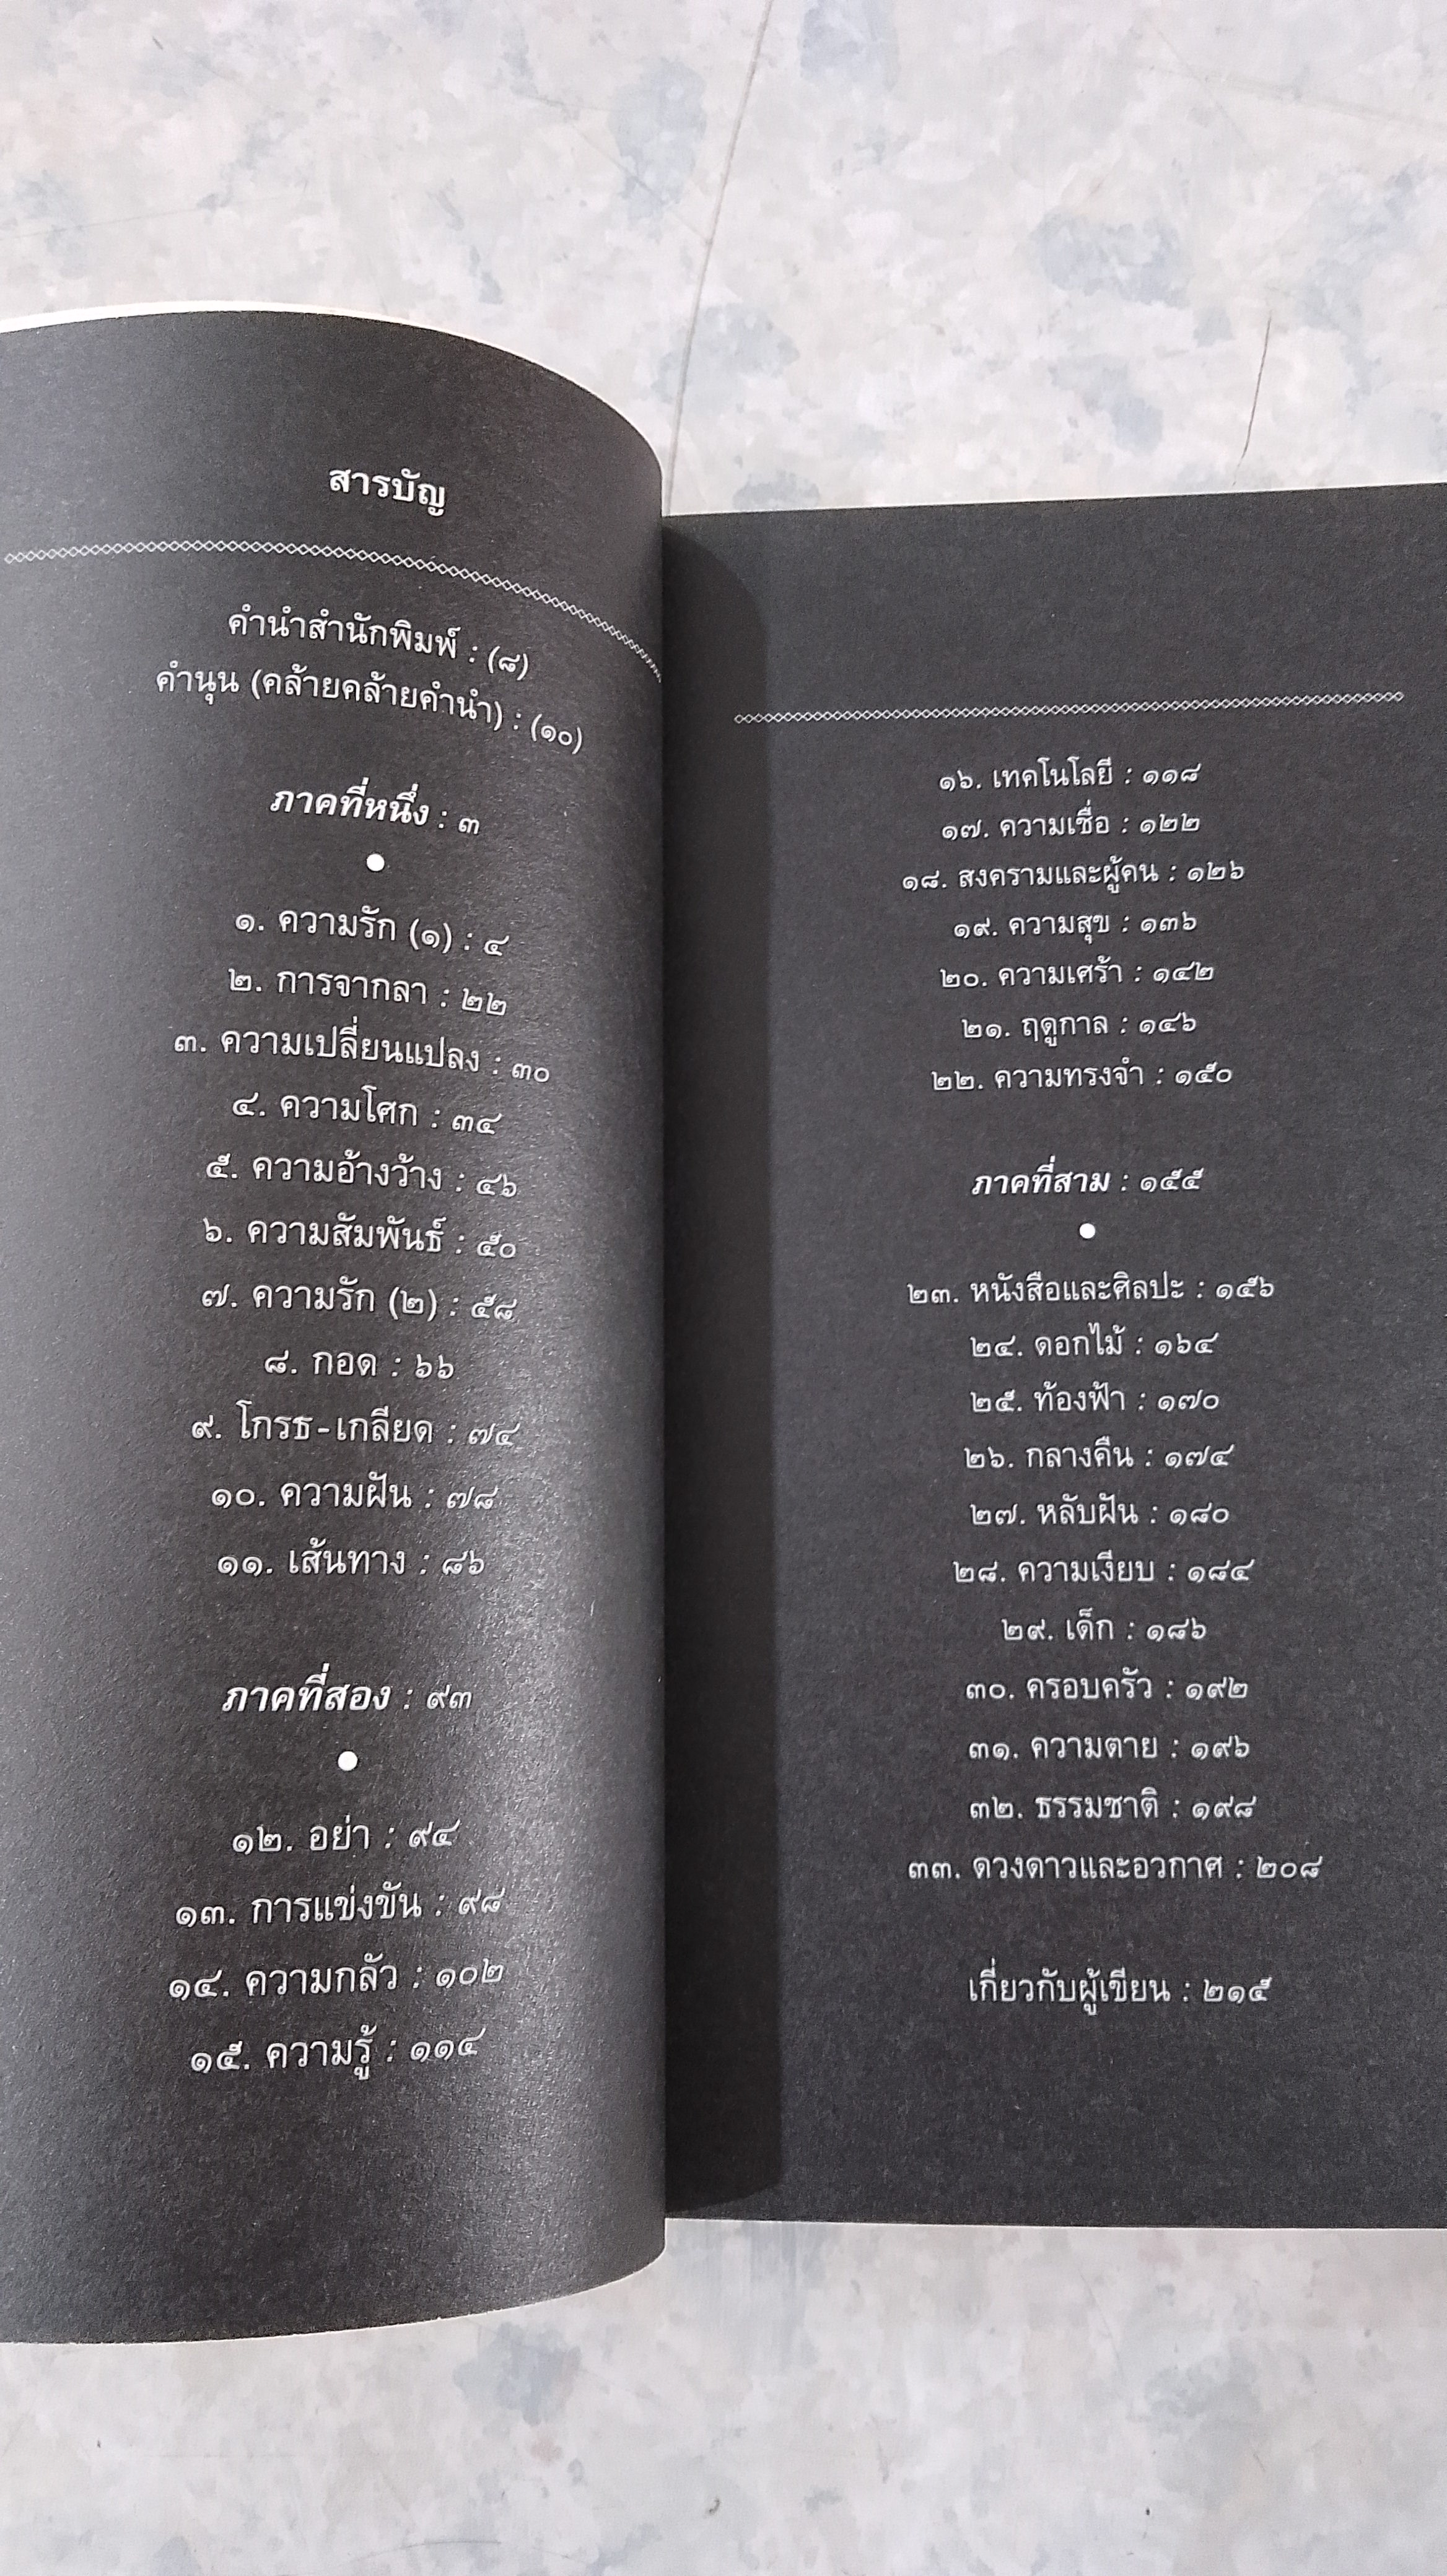 สารบัญ
คำนำสำนักพิมพ์ : (๘)
คำนุน (คล้ายคล้ายคำนำ) : (๑๐)
ภาคที่หนึ่ง : ๓
๑. ความรัก (๑) : ๔
๒. การจากลา : ๒๒
๓. ความเปลี่ยนแปลง : ๓๐
๔. ความโศก : ๓๔
๕. ความอ้างว้าง : ๔๖
๖. ความสัมพันธ์ : ๕๐
๗. ความรัก (๒) : ๕๘
๘. กอด : ๖๖
๙. โกรธ-เกลียด : ๗๔
๑๐. ความฝัน : ๗๘
๑๑. เส้นทาง : ๘๖
ภาคที่สอง : ๙๓
๑๒. อย่า : ๙๔
๑๓. การแข่งขัน : ๙๘
๑๔. ความกลัว : ๑๐๒
๑๕. ความรู้ : ๑๑๔
๑๖. เทคโนโลยี : ๑๑๘
๑๗. ความเชื่อ : ๑๒๒
๑๘. สงครามและผู้คน : ๑๒๖
๑๙. ความสุข : ๑๓๖
๒๐. ความเศร้า : ๑๔๒
๒๑. ฤดูกาล : ๑๔๖
๒๒. ความทรงจำ : ๑๕๐
ภาคที่สาม : ๑๕๕
๒๓. หนังสือและศิลปะ : ๑๕๖
๒๔. ดอกไม้ : ๑๖๔
๒๕. ท้องฟ้า : ๑๗๐
๒๖. กลางคืน : ๑๗๔
๒๗. หลับฝัน : ๑๘๐
๒๘. ความเงียบ : ๑๘๔
๒๙. เด็ก : ๑๘๖
๓๐. ครอบครัว : ๑๙๒
๓๑. ความตาย : ๑๙๖
๓๒. ธรรมชาติ : ๑๙๘
๓๓. ดวงดาวและอวกาศ : ๒๐๘
เกี่ยวกับผู้เขียน : ๒๑๕